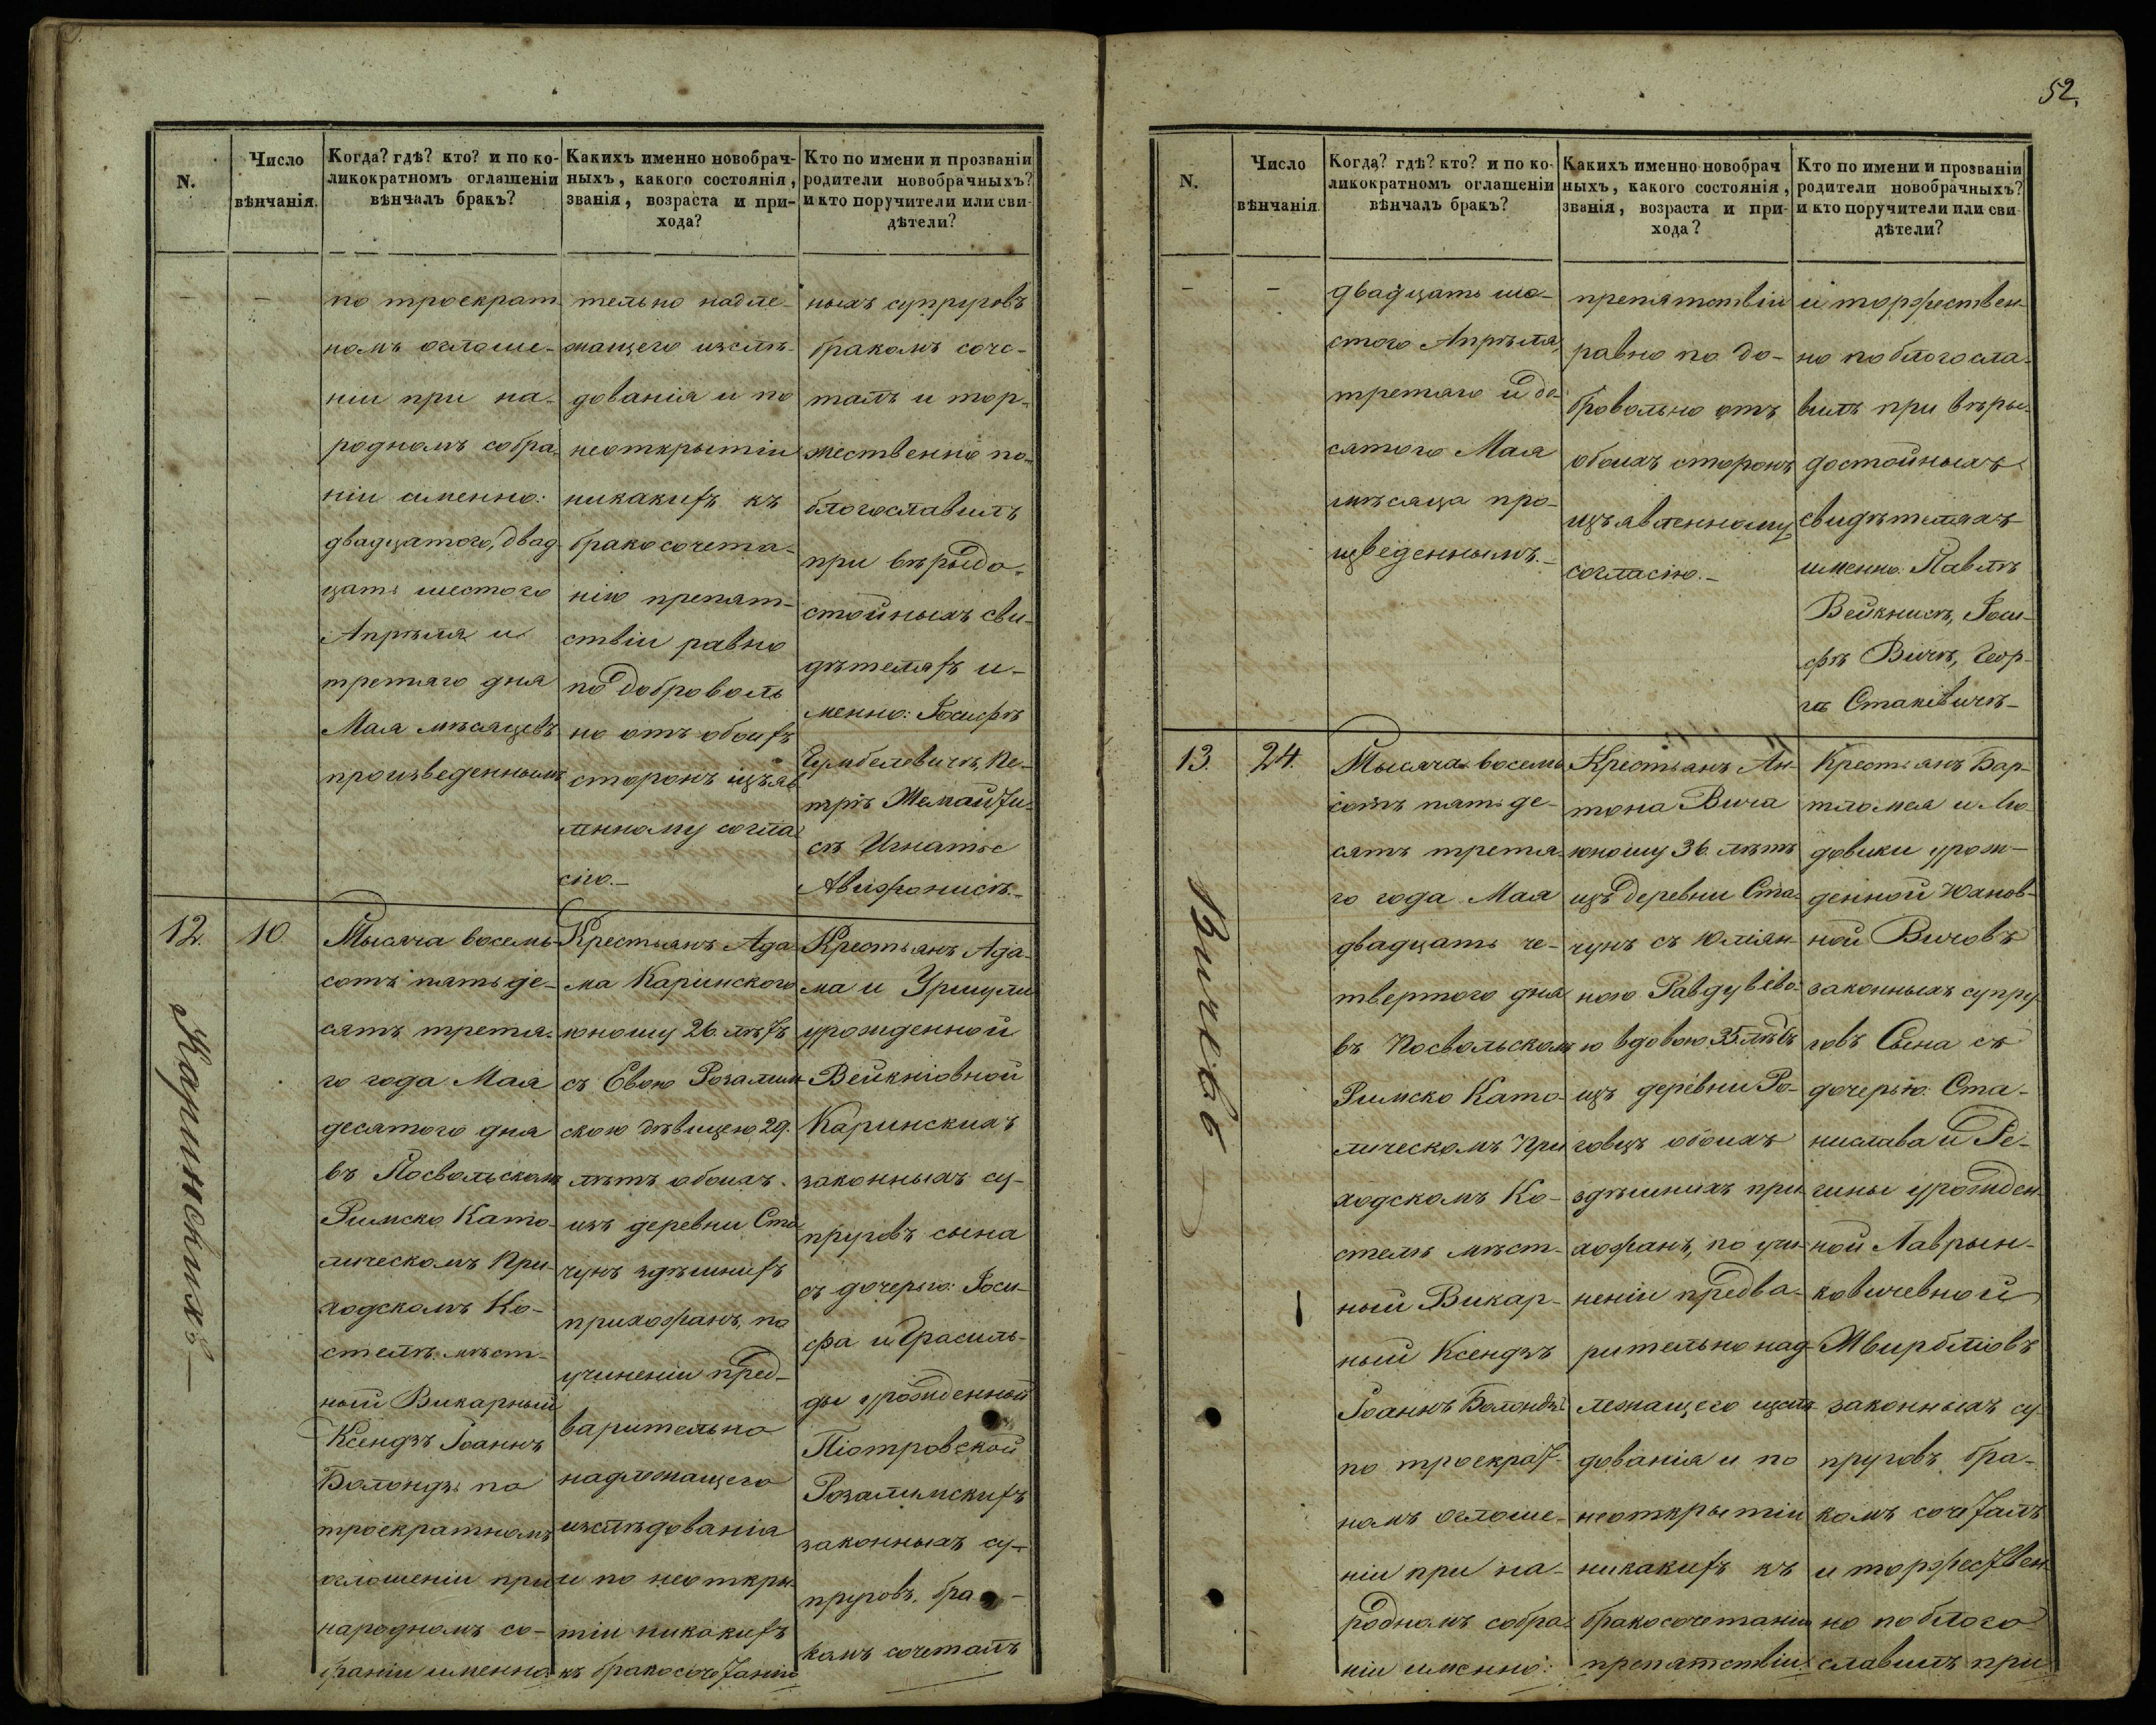 N.
Число
вѣнчанія.
Когда? гдѣ? кто? и по ко-
ликократномъ оглашеніи
вѣнчалъ бракъ?
Какихъ именно новобрач-
ныхъ, какого состоянія,
званія, возраста и при-
хода?
Кто по имени и прозваніи
родители новобрачныхъ?
и кто поручители или сви-
дѣтели?
по троекрат
номъ оглаше-
ніи при на-
родномъ собра-
ніи именно:
двадцатого, двад
цать шестого
Апрѣля и
третяго дня
Мая мѣсяцевъ
произведенным
тельно надле-
жащего изслѣ-
дованія и по
неоткрытіи
никакихъ къ
бракосочета-
нію препят-
ствіи равно
по доброволь
но отъ обоихъ
сторонъ изъяв
ленному согла
сію.-
ныхъ супруговъ
бракомъ соче-
талъ и тор-
жественно по-
благославилъ
при вѣрыдо-
стойныхъ сви-
дѣтеляхъ и-
менно: Іосифѣ
Пе-
трѣ
сѣ Игнатье
12.
10
Каринскихъ.-
Тысяча восемь-
сотъ пятьде-
сятъ третя-
го года Мая
десятого дня
въ Посвольском
Римско Като-
лическомъ При-
ходскомъ Ко-
стелѣ мѣст-
ный Викарный
Ксендзъ Іоаннъ
Болондзь по
троекратномъ
оглошеніи при
народномъ со-
браніи именно:
Крестьянъ Ада
ма Каринского
юношу 26. лѣтъ
съ Евою Розалим
скою дѣвицею 29.
лѣтъ обоихъ
изъ деревни Ста
чунъ здѣшнихъ
прихожанъ, по
учиненіи пред-
варительно
надлежащего
изслѣдованія
и по неоткры
тіи никакихъ
къ бракосочетанію
Крестьянъ Ада-
ма и Уршули
урожденной
Вейкніовной
Каринскихъ
законныхъ су-
пруговъ сына
съ дочерью: Іоси-
фа и Грасиль-
ды урожденной
Піотровской
Розалимскихъ
законныхъ су-
пруговъ, бра-
комъ сочеталъ
52.
N.
Число
вѣнчанія
Когда? гдѣ? кто? и по ко-
ликократномъ оглашеніи
вѣнчалъ бракъ?
Какихъ именно новобрач
ныхъ, какого состоянія,
званія, возраста и при-
хода?
Кто по имени и прозваніи
родители новобрачныхъ?
и кто поручители или сви-
дѣтели?
двадцать ше-
стого Апрѣля,
третяго и де
сятого Мая
мѣсяца про-
изведеннымъ.-
препятствіи
равно по до-
бровольно отъ
обоихъ сторонъ
изъявленному
согласію.-
и торжествен-
но поблогосла-
вилъ при вѣры-
достойныхъ
свидѣтеляхъ
именно: Павлѣ
Вейкнисѣ, Іоси-
фѣ Вичѣ, Геор-
гѣ Стакевичѣ-
13.
24.
Вичовъ
Тысяча восемь
сотъ пятьде-
сятъ третя-
го года Мая
двадцать че-
твертого дня
въ Посвольском
Римско Като-
лическомъ При
ходскомъ Ко-
стелѣ мѣст-
ный Викар-
ный Ксендзъ
Іоаннъ Болондзь
по троекрат-
номъ оглоше-
ніи при на-
родномъ собра-
ніи именно:
Крестьянъ Ан-
тона Вича
юношу 36. лѣтъ
изъ деревни Ста-
чунъ съ Юліян-
ною Равдувево-
ю вдовою 35 лѣтъ
изъ деревни Ро-
говцъ обоихъ
здѣшнихъ при-
хожанъ, по учи-
неніи предва-
рительно над-
лежащего изслѣ
дованія и по
неоткрытіи
никакихъ къ
бракосочетанію
препятствіи
Крестьянъ Бар-
тломея и Лю
довики урож-
денной Юханов-
ной Вичовъ
законныхъ супру
говъ Сына съ
дочерью: Ста-
нислава и Ре-
гины урожден
ной Лаврын-
ковичевной
Жвирбліовъ
законныхъ су-
пруговъ, бра-
комъ сочеталъ
и торжествен
но поблого
славилъ при